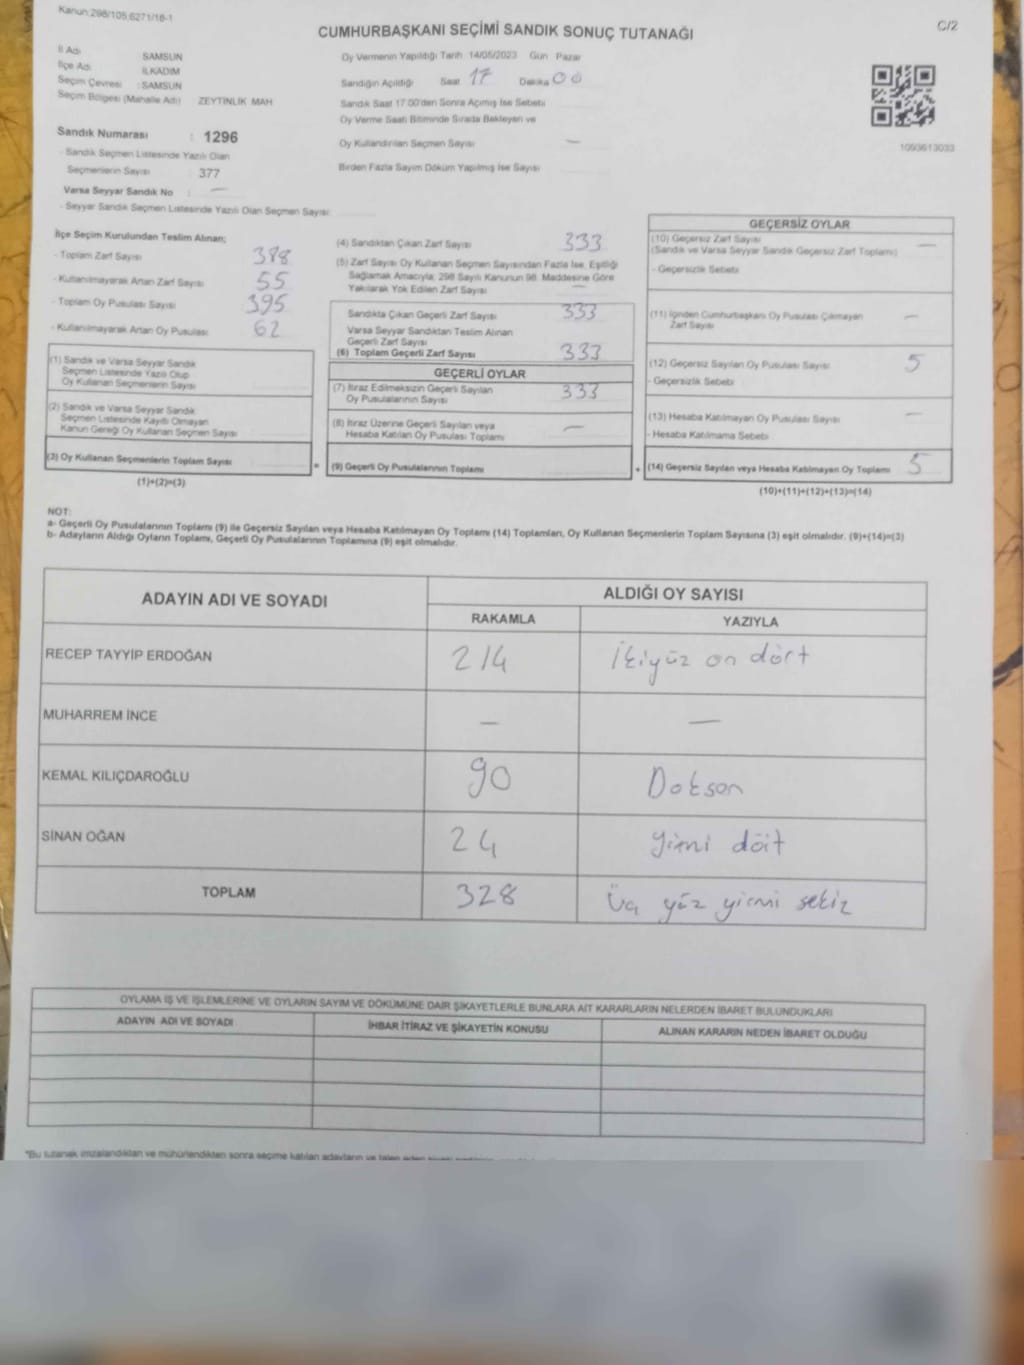 Kanun:298/105,6271/18-1
C/2
CUMHURBAŞKANI SEÇİMİ SANDIK SONUÇ TUTANAĞI
İl Adı SAMSUN
İlçe Adı İLKADIM
Seçim Çevresi : SAMSUN
Seçim Bölgesi (Mahalle Adı) ZEYTİNLİK MAH
Sandık Numarası : 1296
- Sandık Seçmen Listesinde Yazılı Olan
Seçmenlerin Sayısı : 377
Varsa Seyyar Sandık No : —
- Seyyar Sandık Seçmen Listesinde Yazılı Olan Seçmen Sayısı
Oy Vermenin Yapıldığı Tarih 14/05/2023 Gün Pazar
Sandığın Açıldığı Saat 17 Dakika 00
Sandık Saat 17.00'den Sonra Açılmış İse Sebebi
Oy Verme Saati Bitiminde Sırada Bekleyen ve
Oy Kullandırılan Seçmen Sayısı —
Birden Fazla Sayım Döküm Yapılmış İse Sayısı
1093613033
İlçe Seçim Kurulundan Teslim Alınan;
- Toplam Zarf Sayısı 388
- Kullanılmayarak Artan Zarf Sayısı 55
- Toplam Oy Pusulası Sayısı 395
- Kullanılmayarak Artan Oy Pusulası 62
(1) Sandık ve Varsa Seyyar Sandık
Seçmen Listesinde Yazılı Olup
Oy Kullanan Seçmenlerin Sayısı
(2) Sandık ve Varsa Seyyar Sandık
Seçmen Listesinde Kayıtlı Olmayan
Kanun Gereği Oy Kullanan Seçmen Sayısı
(3) Oy Kullanan Seçmenlerin Toplam Sayısı =
(1)+(2)=(3)
(4) Sandıktan Çıkan Zarf Sayısı 333
(5) Zarf Sayısı Oy Kullanan Seçmen Sayısından Fazla İse, Eşitliği
Sağlamak Amacıyla; 298 Sayılı Kanunun 98. Maddesine Göre
Yakılarak Yok Edilen Zarf Sayısı —
Sandıkta Çıkan Geçerli Zarf Sayısı 333
Varsa Seyyar Sandıktan Teslim Alınan
Geçerli Zarf Sayısı
(6) Toplam Geçerli Zarf Sayısı 333
GEÇERLİ OYLAR
(7) İtiraz Edilmeksizin Geçerli Sayılan
Oy Pusulalarının Sayısı 333
(8) İtiraz Üzerine Geçerli Sayılan veya
Hesaba Katılan Oy Pusulası Toplamı —
(9) Geçerli Oy Pusulalarının Toplamı +
GEÇERSİZ OYLAR
(10) Geçersiz Zarf Sayısı —
(Sandık ve Varsa Seyyar Sandık Geçersiz Zarf Toplamı)
- Geçersizlik Sebebi
(11) İçinden Cumhurbaşkanı Oy Pusulası Çıkmayan —
Zarf Sayısı
(12) Geçersiz Sayılan Oy Pusulası Sayısı 5
- Geçersizlik Sebebi
(13) Hesaba Katılmayan Oy Pusulası Sayısı —
- Hesaba Katılmama Sebebi
(14) Geçersiz Sayılan veya Hesaba Katılmayan Oy Toplamı 5
(10)+(11)+(12)+(13)=(14)
NOT:
a- Geçerli Oy Pusulalarının Toplamı (9) ile Geçersiz Sayılan veya Hesaba Katılmayan Oy Toplamı (14) Toplamları, Oy Kullanan Seçmenlerin Toplam Sayısına (3) eşit olmalıdır. (9)+(14)=(3)
b- Adayların Aldığı Oyların Toplamı, Geçerli Oy Pusulalarının Toplamına (9) eşit olmalıdır.
ADAYIN ADI VE SOYADI ALDIĞI OY SAYISI
RAKAMLA YAZIYLA
RECEP TAYYİP ERDOĞAN 214 İkiyüz on dört
MUHARREM İNCE — —
KEMAL KILIÇDAROĞLU 90 Doksan
SİNAN OĞAN 24 yirmi dört
TOPLAM 328 Üç yüz yirmi sekiz
OYLAMA İŞ VE İŞLEMLERİNE VE OYLARIN SAYIM VE DÖKÜMÜNE DAİR ŞİKAYETLERLE BUNLARA AİT KARARLARIN NELERDEN İBARET BULUNDUKLARI
ADAYIN ADI VE SOYADI İHBAR İTİRAZ VE ŞİKAYETİN KONUSU ALINAN KARARIN NEDEN İBARET OLDUĞU
*Bu tutanak imzalandıktan ve mühürlendikten sonra seçime katılan adayların ve talep eden